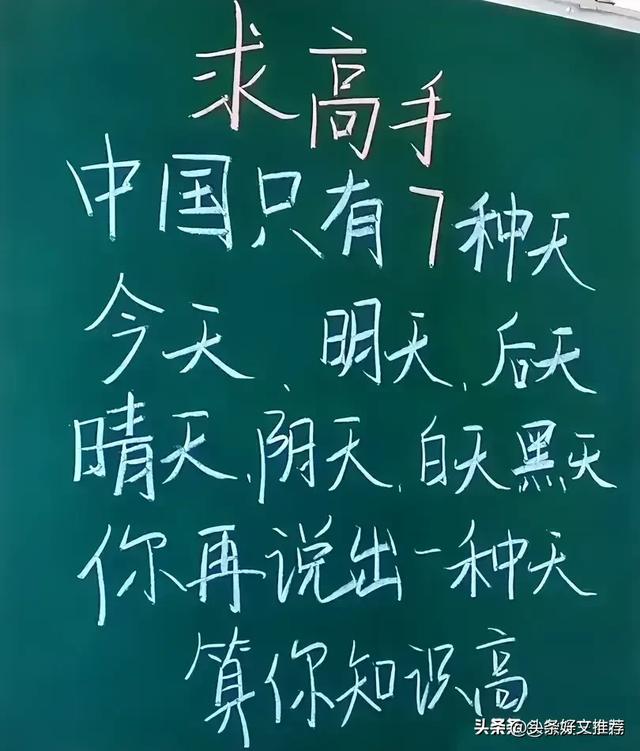 求高手
中国只有7种天
今天、明天、后天
晴天、阴天、白天黑天
你再说出一种天
算你知识高
头条@头条好文推荐